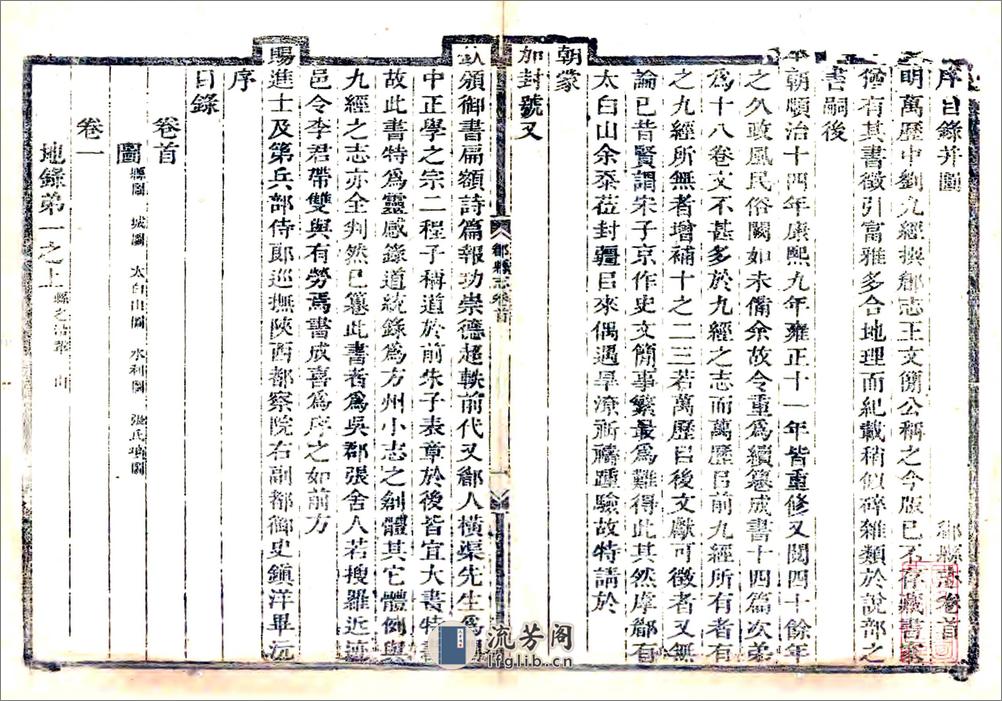 序目錄并圖 郿縣志卷首
明萬歷中劉九經撰郿志王文簡公稱之今版已不存藏書家
猶有其書徵引富雅多合地理而紀載稍似碎雜類於說部之
書嗣後
本朝順治十四年康熙九年雍正十一年皆重修又閱四十餘年
之久政風民俗闕如未備余故令重為續篹成書十四篇次弟
為十八卷文不甚多於九經之志而萬歷㠯前九經所有者有
之九經所無者增補十之二三若萬歷㠯後文獻可徵者又無
論已昔賢謂宋子京作史文簡事繁最為難得此其然庠郿有
太白山余忝莅封疆㠯來偶遇旱潦祈禱踵驗故特請於
朝蒙
加封號又
欽頒御書扁額詩篇報功崇德超軼前代又郿人橫渠先生為
中正學之宗二程子稱道於前朱子表章於後皆宜大書特書
故此書特為靈感錄道統錄為方州小志之創體其它體例與
九經之志亦全判然已篹此書者為吳郡張舍人若搜羅近迹
邑令李君帶雙與有勞焉書成喜為序之如前方
賜進士及第兵部侍郎巡撫陝西都察院右副都御史鎮洋畢沅
序
目錄
卷首
圖 縣圖 城圖 太白山圖 水利圖 張氏墳圖
卷一
地錄弟一之上 縣之沿革 山
郿縣志卷首
一
流芳阁
lfglib.cn